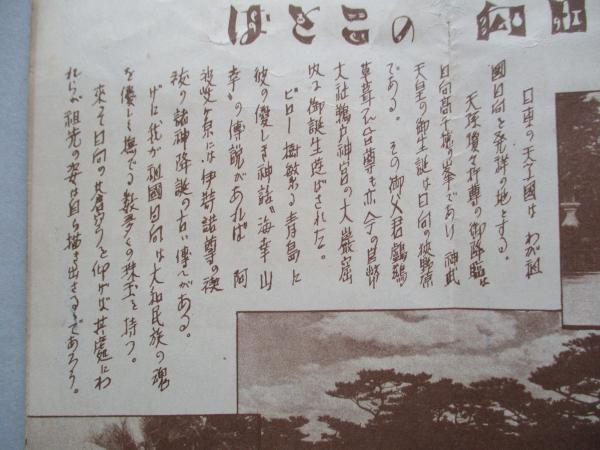 日向のことば
日本の天子國は わが祖
國日向を発祥の地とする。
天孫瓊々杵尊の御降臨は
日向高千穂の峯であり 神武
天皇の御生誕は日向の狭野原
である。その御父君鸕鶿
草葺不合尊も亦 今の官幣
大社鵜戸神宮の大巖窟
内に御誕生遊ばされた。
ビロー樹繁る青島に
彼の優しき神話〝海幸山
幸〟の傳説があれば 阿
波岐ヶ原には伊弉諾尊の禊
祓の諸神降誕の古い傳へがある。
げに我が祖國日向は大和民族の魂
を優しく撫でる数多くの珠玉を持つ。
来そ日向の蒼穹を仰げば其處にわ
れらが祖先の姿は自ら描き出さるゝであらう。